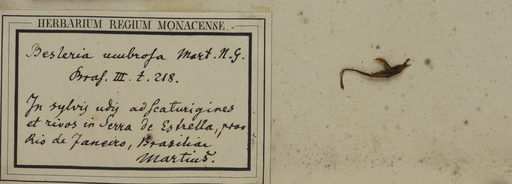 HERBARIUM REGIUM MONACENSE
Besleria umbrosa Mart. N. G.
Bras. III. t. 218.
In sylvis udis ad scaturigines
et rivos in Serra de Estrella, prov
Rio de Janeiro, Brasiliae
Martius.